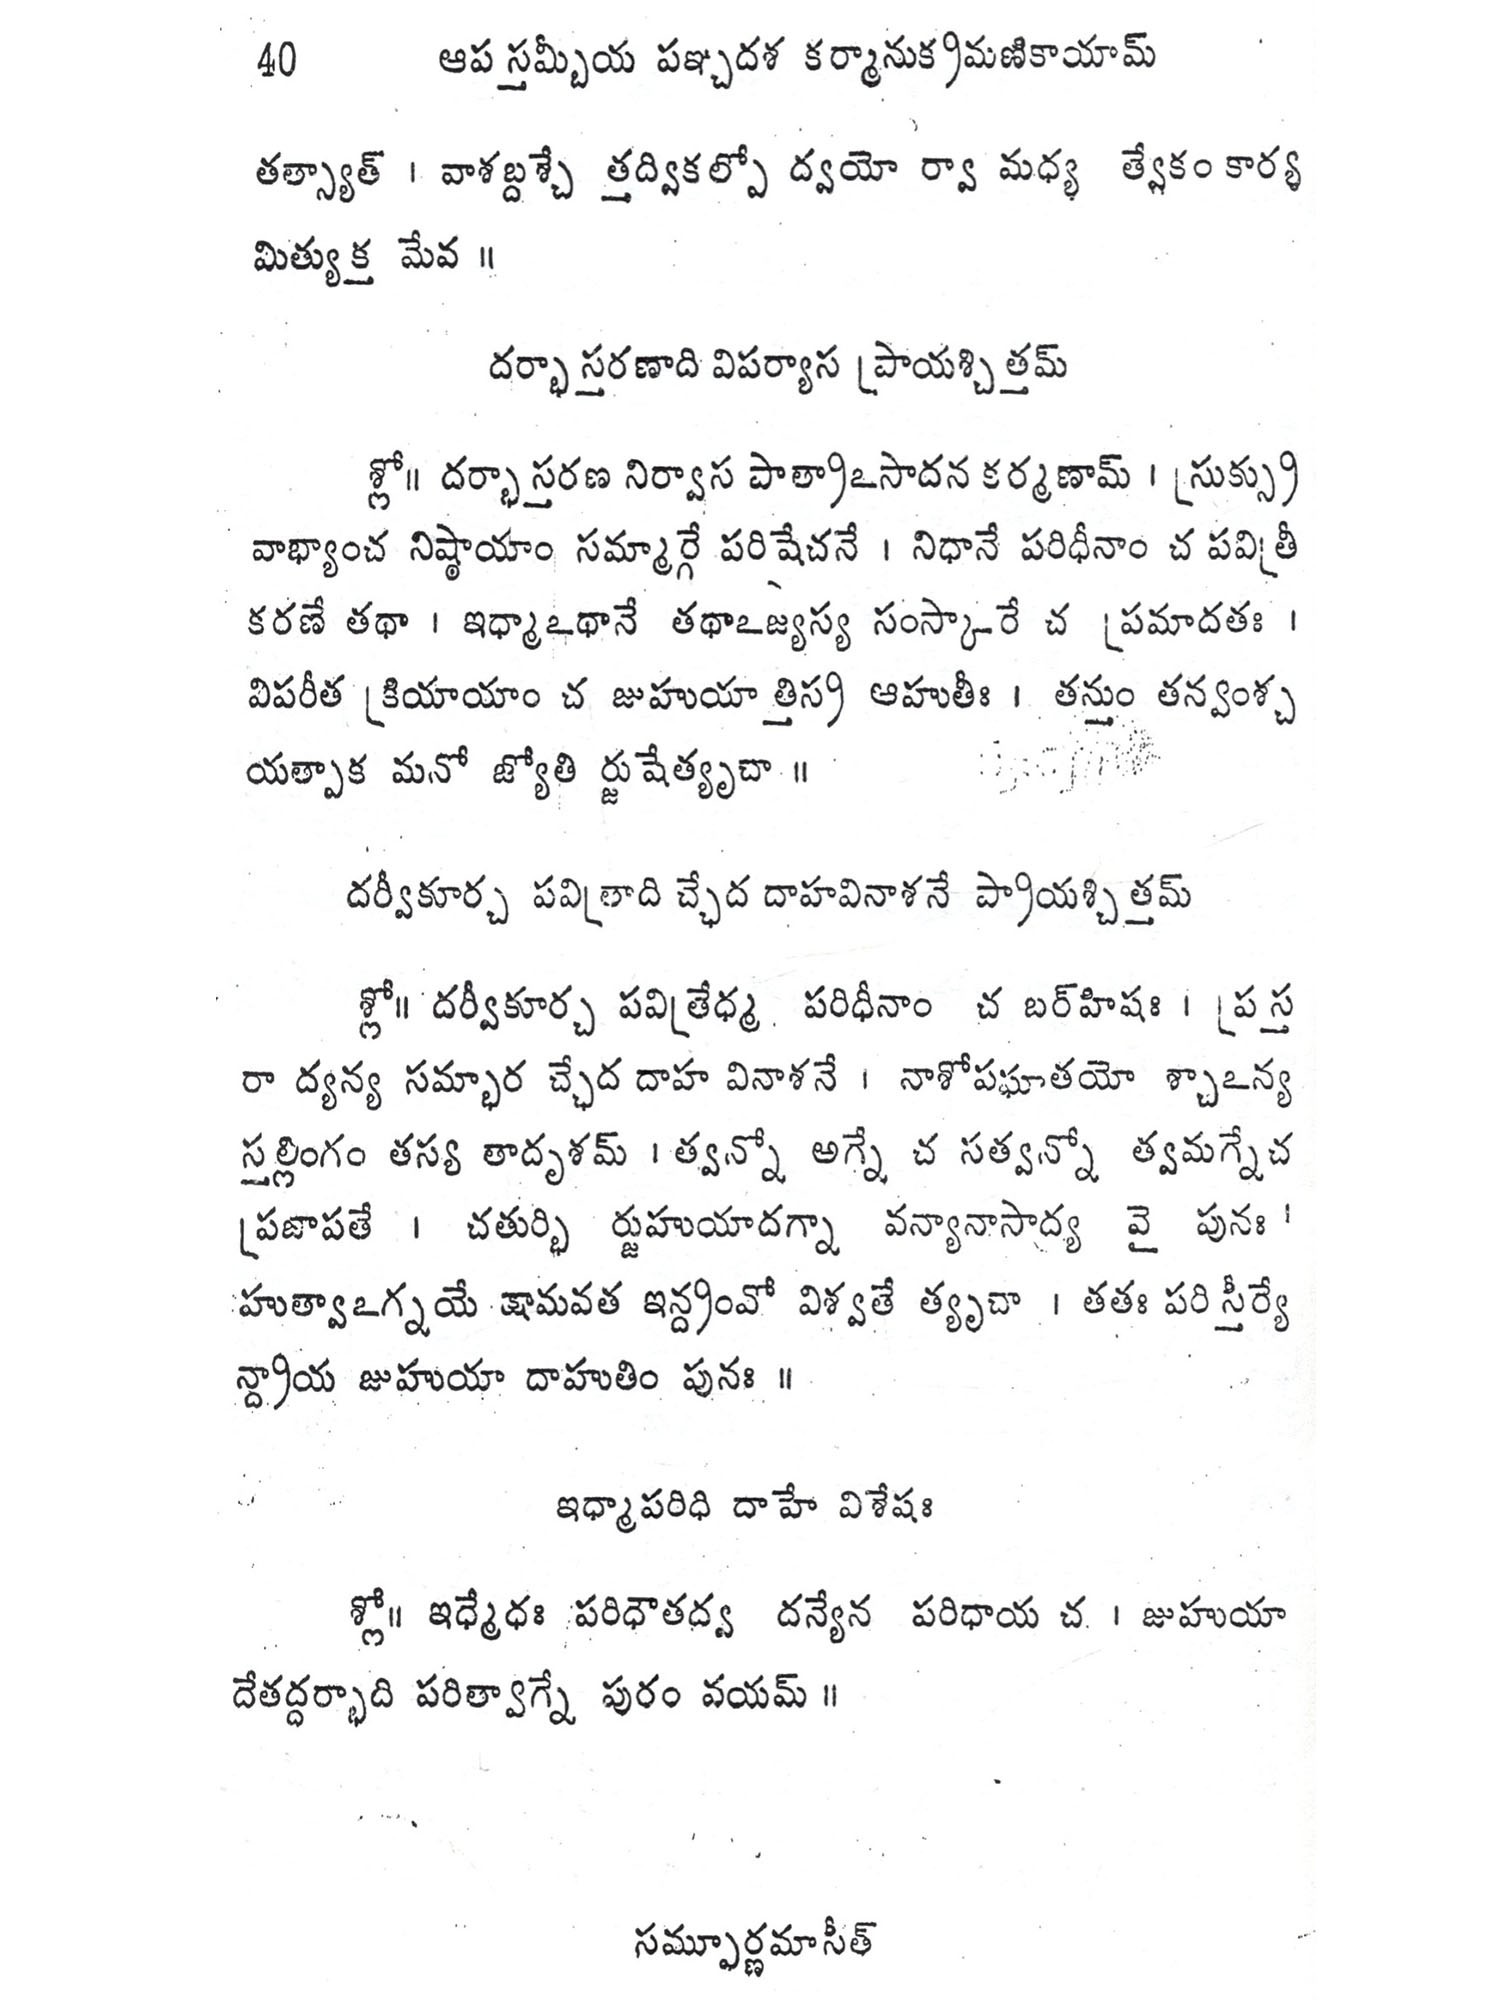 40 ఆప స్తమ్బీయ పఞ్చదశ కర్మానుక్రమణికాయామ్
తత్స్యాత్ । వాశబ్దశ్చే త్తద్వికల్పో ద్వయో ర్వా మధ్య త్వేకం కార్య
మిత్యుక్త మేవ ॥
దర్భా స్తరణాది విపర్యాస ప్రాయశ్చిత్తమ్
శ్లో॥ దర్భాస్తరణ నిర్వాస పాత్రాఽసాదన కర్మణామ్ । స్రుక్స్రు
వాభ్యాంచ నిష్ఠాయాం సమ్మార్గే పరిషేచనే । నిధానే పరిధీనాం చ పవిత్రీ
కరణే తథా । ఇధ్మాఽథానే తథాఽజ్యస్య సంస్కారే చ ప్రమాదతః ।
విపరీత క్రియాయాం చ జుహుయా త్తిస్ర ఆహుతీః । తన్తుం తన్వంశ్చ
యత్పాక మనో జ్యోతి ర్జుషేత్యృచా ॥
దర్వీకూర్చ పవిత్రాది చ్ఛేద దాహవినాశనే ప్రాయశ్చిత్తమ్
శ్లో॥ దర్వీకూర్చ పవిత్రేధ్మ పరిధీనాం చ బర్‌హిషః । ప్రస్త
రా ద్యన్య సమ్భార చ్ఛేద దాహ వినాశనే । నాశోపఘాతయో శ్చాఽన్య
స్తల్లింగం తస్య తాదృశమ్ । త్వన్నో అగ్నే చ సత్వన్నో త్వమగ్నేచ
ప్రజాపతే । చతుర్భి ర్జుహుయాదగ్నా వన్యానాసాద్య వై పునః ।
హుత్వాఽగ్నయే క్షామవత ఇన్ద్రంవో విశ్వతే త్యృచా । తతః పరిస్తీర్యే
న్ద్రాయ జుహుయా దాహుతిం పునః ॥
ఇధ్మాపరిధి దాహే విశేషః
శ్లో॥ ఇధ్మేధః పరిధౌతద్వ దన్యేన పరిధాయ చ । జుహుయా
దేతద్ధర్భాది పరిత్వాగ్నే పురం వయమ్ ॥
సమ్పూర్ణమాసీత్